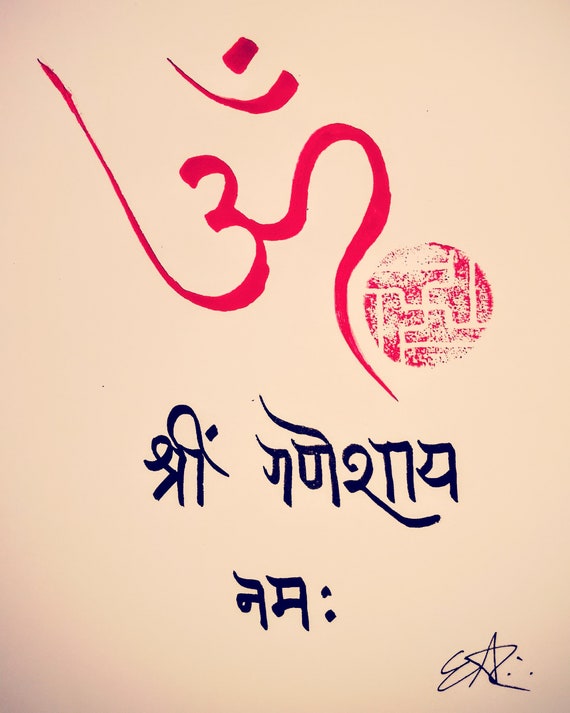 ॐ
श्रीं गणेशाय
नमः